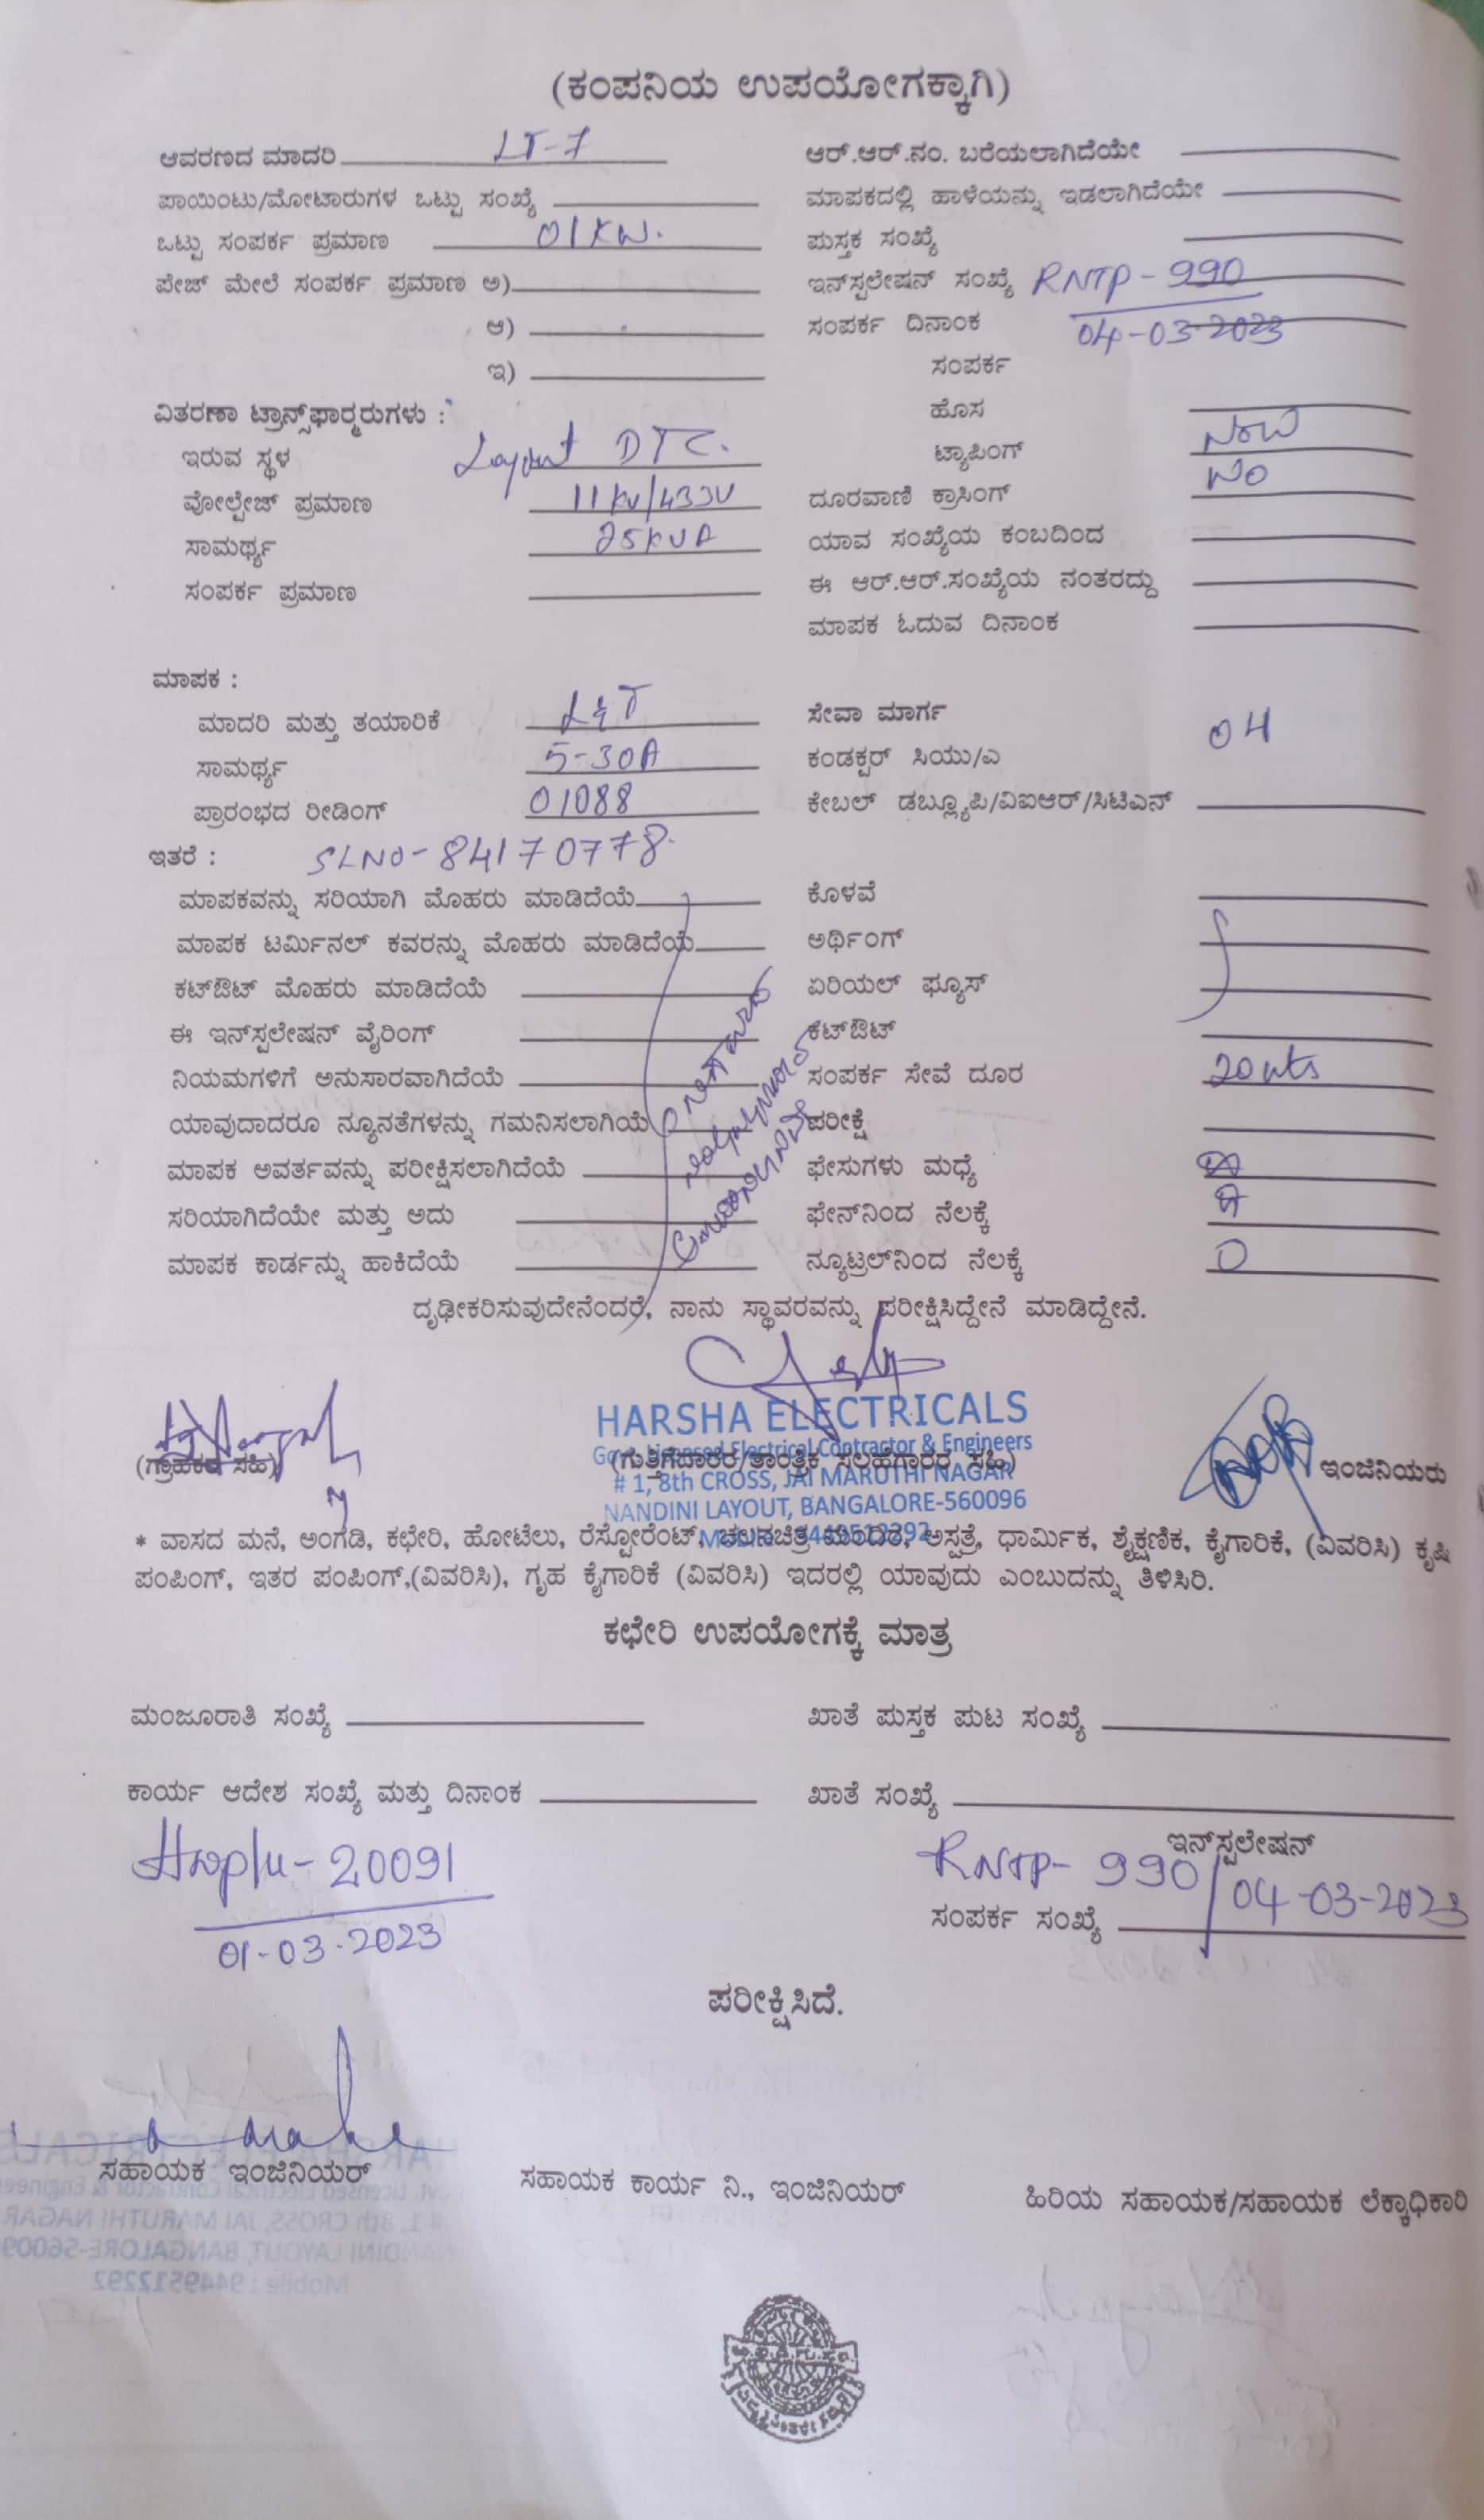 (ಕಂಪನಿಯ ಉಪಯೋಗಕ್ಕಾಗಿ)
ಆವರಣದ ಮಾದರಿ LT-7
ಪಾಯಿಂಟು/ಮೋಟಾರುಗಳ ಒಟ್ಟು ಸಂಖ್ಯೆ
ಒಟ್ಟು ಸಂಪರ್ಕ ಪ್ರಮಾಣ 01KW.
ಪೇಜ್ ಮೇಲೆ ಸಂಪರ್ಕ ಪ್ರಮಾಣ ಅ)
ಆ)
ಇ)
ವಿತರಣಾ ಟ್ರಾನ್ಸ್‌ಫಾರ್ಮರುಗಳು :
ಇರುವ ಸ್ಥಳ Layout DTC.
ವೋಲ್ಟೇಜ್ ಪ್ರಮಾಣ 11KV/433V
ಸಾಮರ್ಥ್ಯ 25KVA
ಸಂಪರ್ಕ ಪ್ರಮಾಣ
ಆರ್.ಆರ್.ನಂ. ಬರೆಯಲಾಗಿದೆಯೇ
ಮಾಪಕದಲ್ಲಿ ಹಾಳೆಯನ್ನು ಇಡಲಾಗಿದೆಯೇ
ಪುಸ್ತಕ ಸಂಖ್ಯೆ
ಇನ್‌ಸ್ಪಲೇಷನ್ ಸಂಖ್ಯೆ RNTP-990
ಸಂಪರ್ಕ ದಿನಾಂಕ 04-03-2023
ಸಂಪರ್ಕ
ಹೊಸ
ಟ್ಯಾಪಿಂಗ್
ದೂರವಾಣಿ ಕ್ರಾಸಿಂಗ್ NO
ಯಾವ ಸಂಖ್ಯೆಯ ಕಂಬದಿಂದ
ಈ ಆರ್.ಆರ್.ಸಂಖ್ಯೆಯ ನಂತರದ್ದು
ಮಾಪಕ ಓದುವ ದಿನಾಂಕ
ಮಾಪಕ :
ಮಾದರಿ ಮತ್ತು ತಯಾರಿಕೆ L&T
ಸಾಮರ್ಥ್ಯ 5-30A
ಪ್ರಾರಂಭದ ರೀಡಿಂಗ್ 01088
ಇತರೆ : SLNO-84170778
ಮಾಪಕವನ್ನು ಸರಿಯಾಗಿ ಮೊಹರು ಮಾಡಿದೆಯೆ
ಮಾಪಕ ಟರ್ಮಿನಲ್ ಕವರನ್ನು ಮೊಹರು ಮಾಡಿದೆಯೆ
ಕಟ್‌ಔಟ್ ಮೊಹರು ಮಾಡಿದೆಯೆ
ಈ ಇನ್‌ಸ್ಪಲೇಷನ್ ವೈರಿಂಗ್
ನಿಯಮಗಳಿಗೆ ಅನುಸಾರವಾಗಿದೆಯೆ
ಯಾವುದಾದರೂ ನ್ಯೂನತೆಗಳನ್ನು ಗಮನಿಸಲಾಗಿಯೆ
ಮಾಪಕ ಅವರ್ತವನ್ನು ಪರೀಕ್ಷಿಸಲಾಗಿದೆಯೆ
ಸರಿಯಾಗಿದೆಯೇ ಮತ್ತು ಅದು
ಮಾಪಕ ಕಾರ್ಡನ್ನು ಹಾಕಿದೆಯೆ
ಸೇವಾ ಮಾರ್ಗ
ಕಂಡಕ್ಟರ್ ಸಿಯು/ಎ 04
ಕೇಬಲ್ ಡಬ್ಲ್ಯೂಪಿ/ವಿಐಆರ್/ಸಿಟಿಎನ್
ಕೊಳವೆ
ಅರ್ಥಿಂಗ್
ಏರಿಯಲ್ ಫ್ಯೂಸ್
ಕೆಟ್‌ಔಟ್
ಸಂಪರ್ಕ ಸೇವೆ ದೂರ 20mts
ಪರೀಕ್ಷೆ
ಫೇಸುಗಳು ಮಧ್ಯೆ
ಫೇನ್‌ನಿಂದ ನೆಲಕ್ಕೆ
ನ್ಯೂಟ್ರಲ್‌ನಿಂದ ನೆಲಕ್ಕೆ 0
ದೃಢೀಕರಿಸುವುದೇನೆಂದರೆ, ನಾನು ಸ್ಥಾವರವನ್ನು ಪರೀಕ್ಷಿಸಿದ್ದೇನೆ ಮಾಡಿದ್ದೇನೆ.
HARSHA ELECTRICALS
Govt. Licensed Electrical Contractor & Engineers
# 1, 8th CROSS, JAI MARUTHI NAGAR
NANDINI LAYOUT, BANGALORE-560096
(ಗ್ರಾಹಕರ ಸಹಿ) (ಗುತ್ತಿಗೆದಾರರ/ತಾಂತ್ರಿಕ ಸಲಹೆಗಾರರ ಸಹಿ) ಇಂಜಿನಿಯರು
* ವಾಸದ ಮನೆ, ಅಂಗಡಿ, ಕಛೇರಿ, ಹೋಟೆಲು, ರೆಸ್ಟೋರೆಂಟ್, ಚಲನಚಿತ್ರ ಮಂದಿರ, ಅಸ್ಪತ್ರೆ, ಧಾರ್ಮಿಕ, ಶೈಕ್ಷಣಿಕ, ಕೈಗಾರಿಕೆ, (ವಿವರಿಸಿ) ಕೃಷಿ
ಪಂಪಿಂಗ್, ಇತರ ಪಂಪಿಂಗ್,(ವಿವರಿಸಿ), ಗೃಹ ಕೈಗಾರಿಕೆ (ವಿವರಿಸಿ) ಇದರಲ್ಲಿ ಯಾವುದು ಎಂಬುದನ್ನು ತಿಳಿಸಿರಿ.
ಕಛೇರಿ ಉಪಯೋಗಕ್ಕೆ ಮಾತ್ರ
ಮಂಜೂರಾತಿ ಸಂಖ್ಯೆ ಖಾತೆ ಪುಸ್ತಕ ಪುಟ ಸಂಖ್ಯೆ
ಕಾರ್ಯ ಆದೇಶ ಸಂಖ್ಯೆ ಮತ್ತು ದಿನಾಂಕ ಖಾತೆ ಸಂಖ್ಯೆ
20091
01-03-2023
ಇನ್‌ಸ್ಪಲೇಷನ್
RNTP-990/04-03-2023
ಸಂಪರ್ಕ ಸಂಖ್ಯೆ
ಪರೀಕ್ಷಿಸಿದೆ.
ಸಹಾಯಕ ಇಂಜಿನಿಯರ್ ಸಹಾಯಕ ಕಾರ್ಯ ನಿ., ಇಂಜಿನಿಯರ್ ಹಿರಿಯ ಸಹಾಯಕ/ಸಹಾಯಕ ಲೆಕ್ಕಾಧಿಕಾರಿ